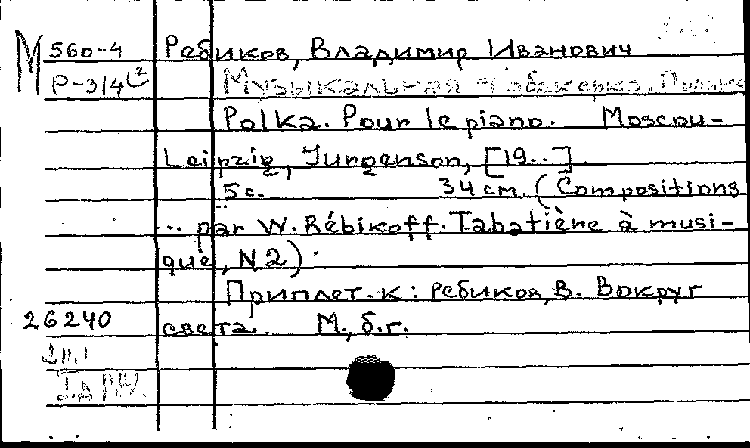 М 560-4 Ребиков, Владимир Иванович
Р-314 Музыкальная табакерка. Полька
Polka. Pour le piano. Moscou-
Leipzig, Jurgenson, [19..]
5 с. 34 см. (Compositions
... par W. Rébikoff. Tabatière à musi-
que, N 2).
Приплет. к: Ребиков, В. Вокруг
26240 света. М., б.г.